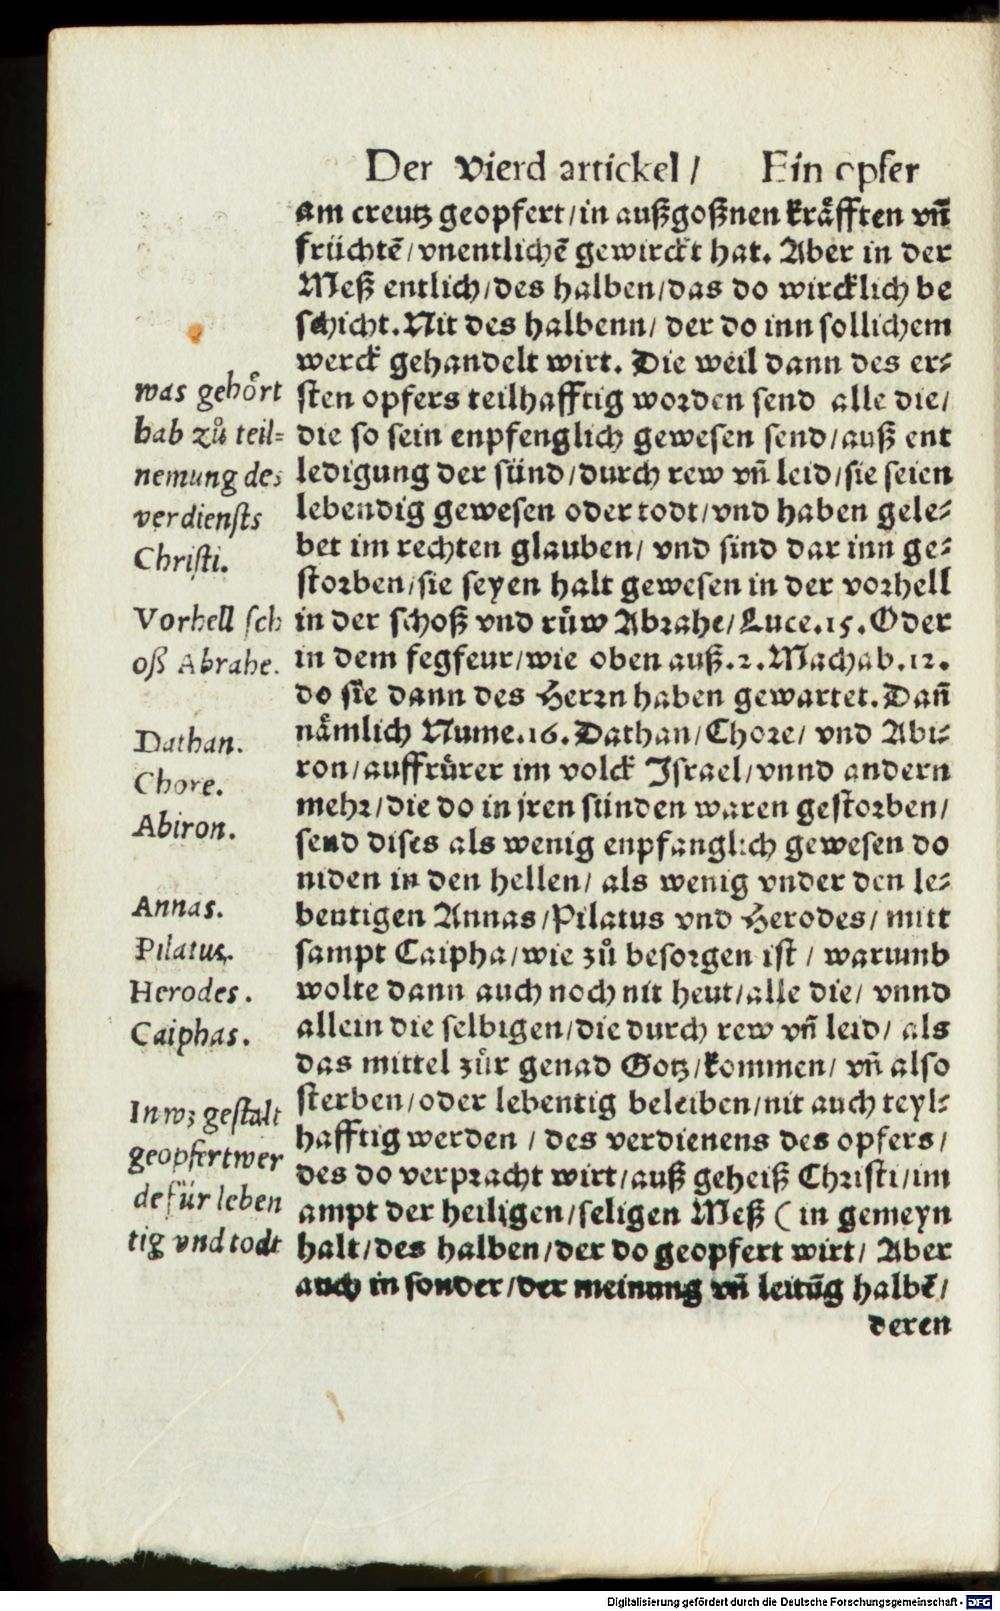 Der Vierd artickel / Ein opfer
am creutz geopfert/in außgoßnen kraͤfften vn̄
früchtē/vnentlichē gewirckt hat. Aber in der
Meß entlich/des halben/das do wircklich be
schicht. Nit des halbenn/ der do inn sollichem
werck gehandelt wirt. Die weil dann des er⸗
sten opfers teilhafftig worden send alle die/
die so sein enpfenglich gewesen send/auß ent
ledigung der sünd/durch rew vn̄ leid/sie seien
lebendig gewesen oder todt/vnd haben gele⸗
bet im rechten glauben/ vnd sind dar inn ge⸗
storben/sie seyen halt gewesen in der vorhell
in der schoß vnd ruͤw Abrahe/Luce.15. Oder
in dem fegfeur/wie oben auß.2.Machab.12.
do sie dann des Herrn haben gewartet. Dan̄
naͤmlich Nume.16. Dathan/Chore/ vnd Abi⸗
ron/auffruͤrer im volck Israel/vnnd andern
mehr/die do in jren sünden waren gestorben/
send dises als wenig enpfanglich gewesen do
niden in den hellen/ als wenig vnder den le⸗
bentigen Annas/Pilatus vnd Herodes/ mitt
sampt Caipha/wie zuͦ besorgen ist / warumb
wolte dann auch noch nit heut/alle die/ vnnd
allein die selbigen/die durch rew vn̄ leid/ als
das mittel zuͤr genad Gotz/kommen/ vn̄ also
sterben/oder lebentig beleiben/nit auch teyl⸗
hafftig werden / des verdienens des opfers/
des do verpracht wirt/auß geheiß Christi/im
ampt der heiligen/seligen Meß ( in gemeyn
halt/des halben/der do geopfert wirt/ Aber
auch in sonder/der meinung vn̄ leitūg halbē/
deren
was gehoͤrt
hab zuͦ teil⸗
nemung des
verdiensts
Christi.
Vorhell sch
oß Abrahe.
Dathan.
Chore.
Abiron.
Annas.
Pilatus.
Herodes.
Caiphas.
In wꝫ gestalt
geopfert wer
de für leben
tig vnd todt
Digitalisierung gefördert durch die Deutsche Forschungsgemeinschaft - DFG